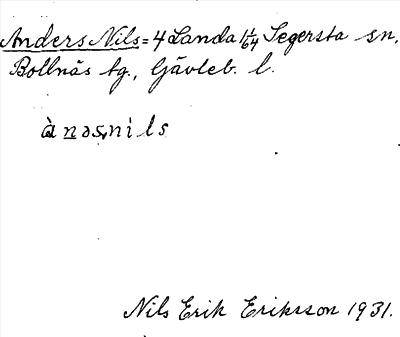 Anders Nils = 4 Landa 1/64 Segersta sn,
Bollnäs tg., Gävleb. l.
ànəsnìls
Nils Erik Eriksson 1931.